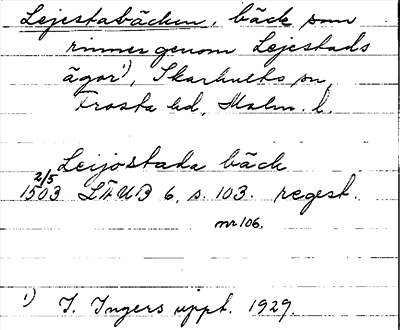 Lejestabäcken, bäck som
rinner genom Lejestads
ägor¹), Skarhults sn,
Frosta hd, Malm. l.
Leijostada bäck
2/5
1503 LÄUB 6, s. 103. regest.
nr 106.
¹) I. Ingers uppt. 1929.